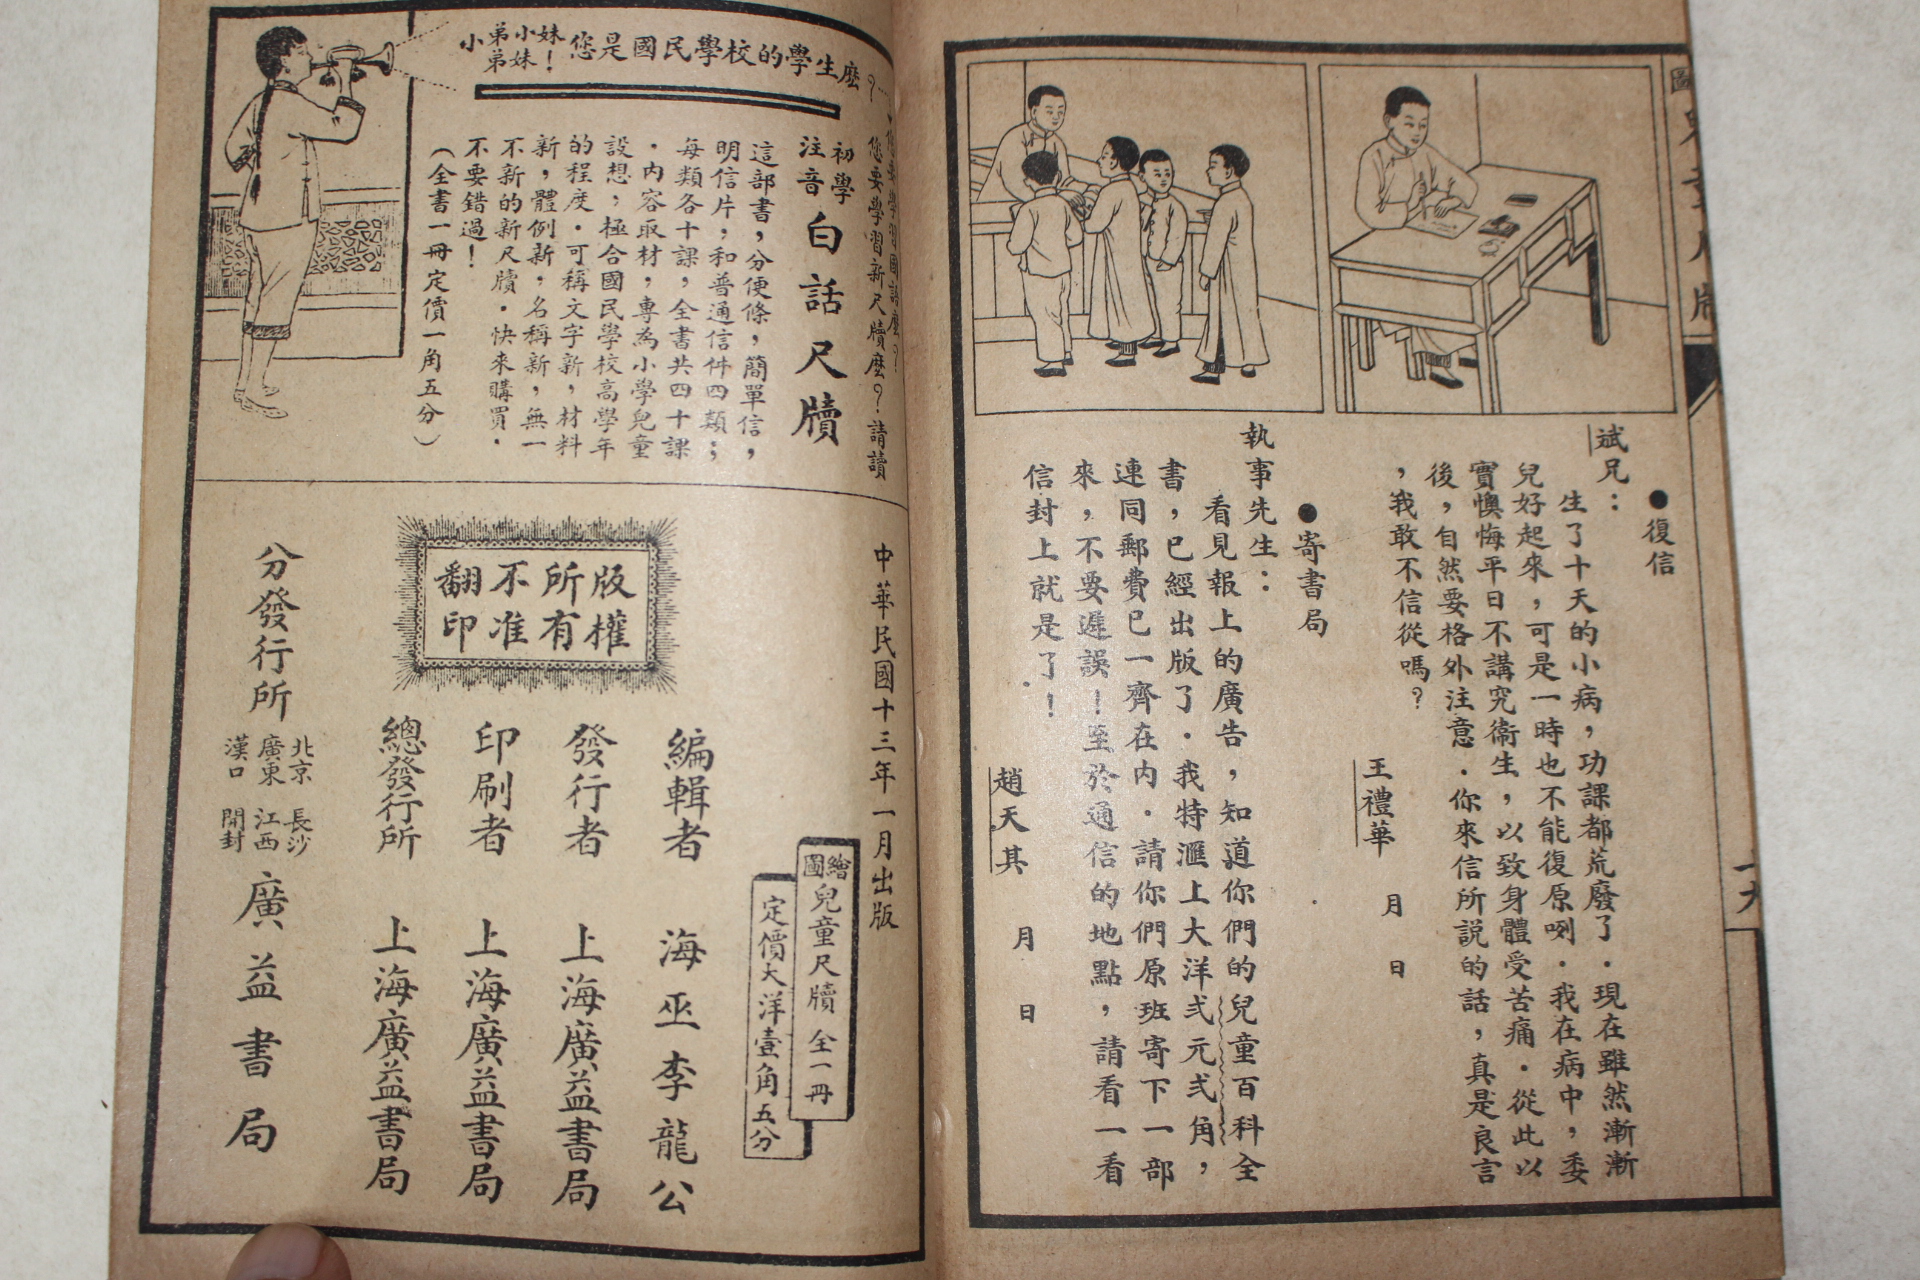 ●復信
斌兄：
生了十天的小病，功課都荒廢了．現在雖然漸漸
兒好起來，可是一時也不能復原咧．我在病中，委
實懊悔平日不講究衞生，以致身體受苦痛．從此以
後，自然要格外注意．你來信所説的話，真是良言
，我敢不信從嗎？
王禮華　月　日
●寄書局
執事先生：
看見報上的廣告，知道你們的兒童百科全
書，已經出版了．我特滙上大洋弍元弍角，
連同郵費已一齊在内．請你們原班寄下一部
來，不要遲誤！至於通信的地點，請看一看
信封上就是了！
趙天其　月　日
一九
小弟弟小妹妹！您是國民學校的學生麽？
您要學習國語麽？
您要學習新尺牘麽？請讀
初學注音白話尺牘
這部書，分便條，簡單信，
明信片，和普通信件四類；
每類各十課，全書共四十課
．内容取材，專為小學兒童
設想，極合國民學校高學年
的程度．可稱文字新，材料
新，體例新，名稱新，無一
不新的新尺牘．快來購買．
不要錯過！
（全書一冊定價一角五分）
中華民國十三年一月出版
繪圖兒童尺牘全一冊
定價大洋壹角五分
版權所有不准翻印
編輯者　海巫李龍公
發行者　上海廣益書局
印刷者　上海廣益書局
總發行所　上海廣益書局
分發行所　北京　廣東　漢口　長沙　江西　開封　廣益書局